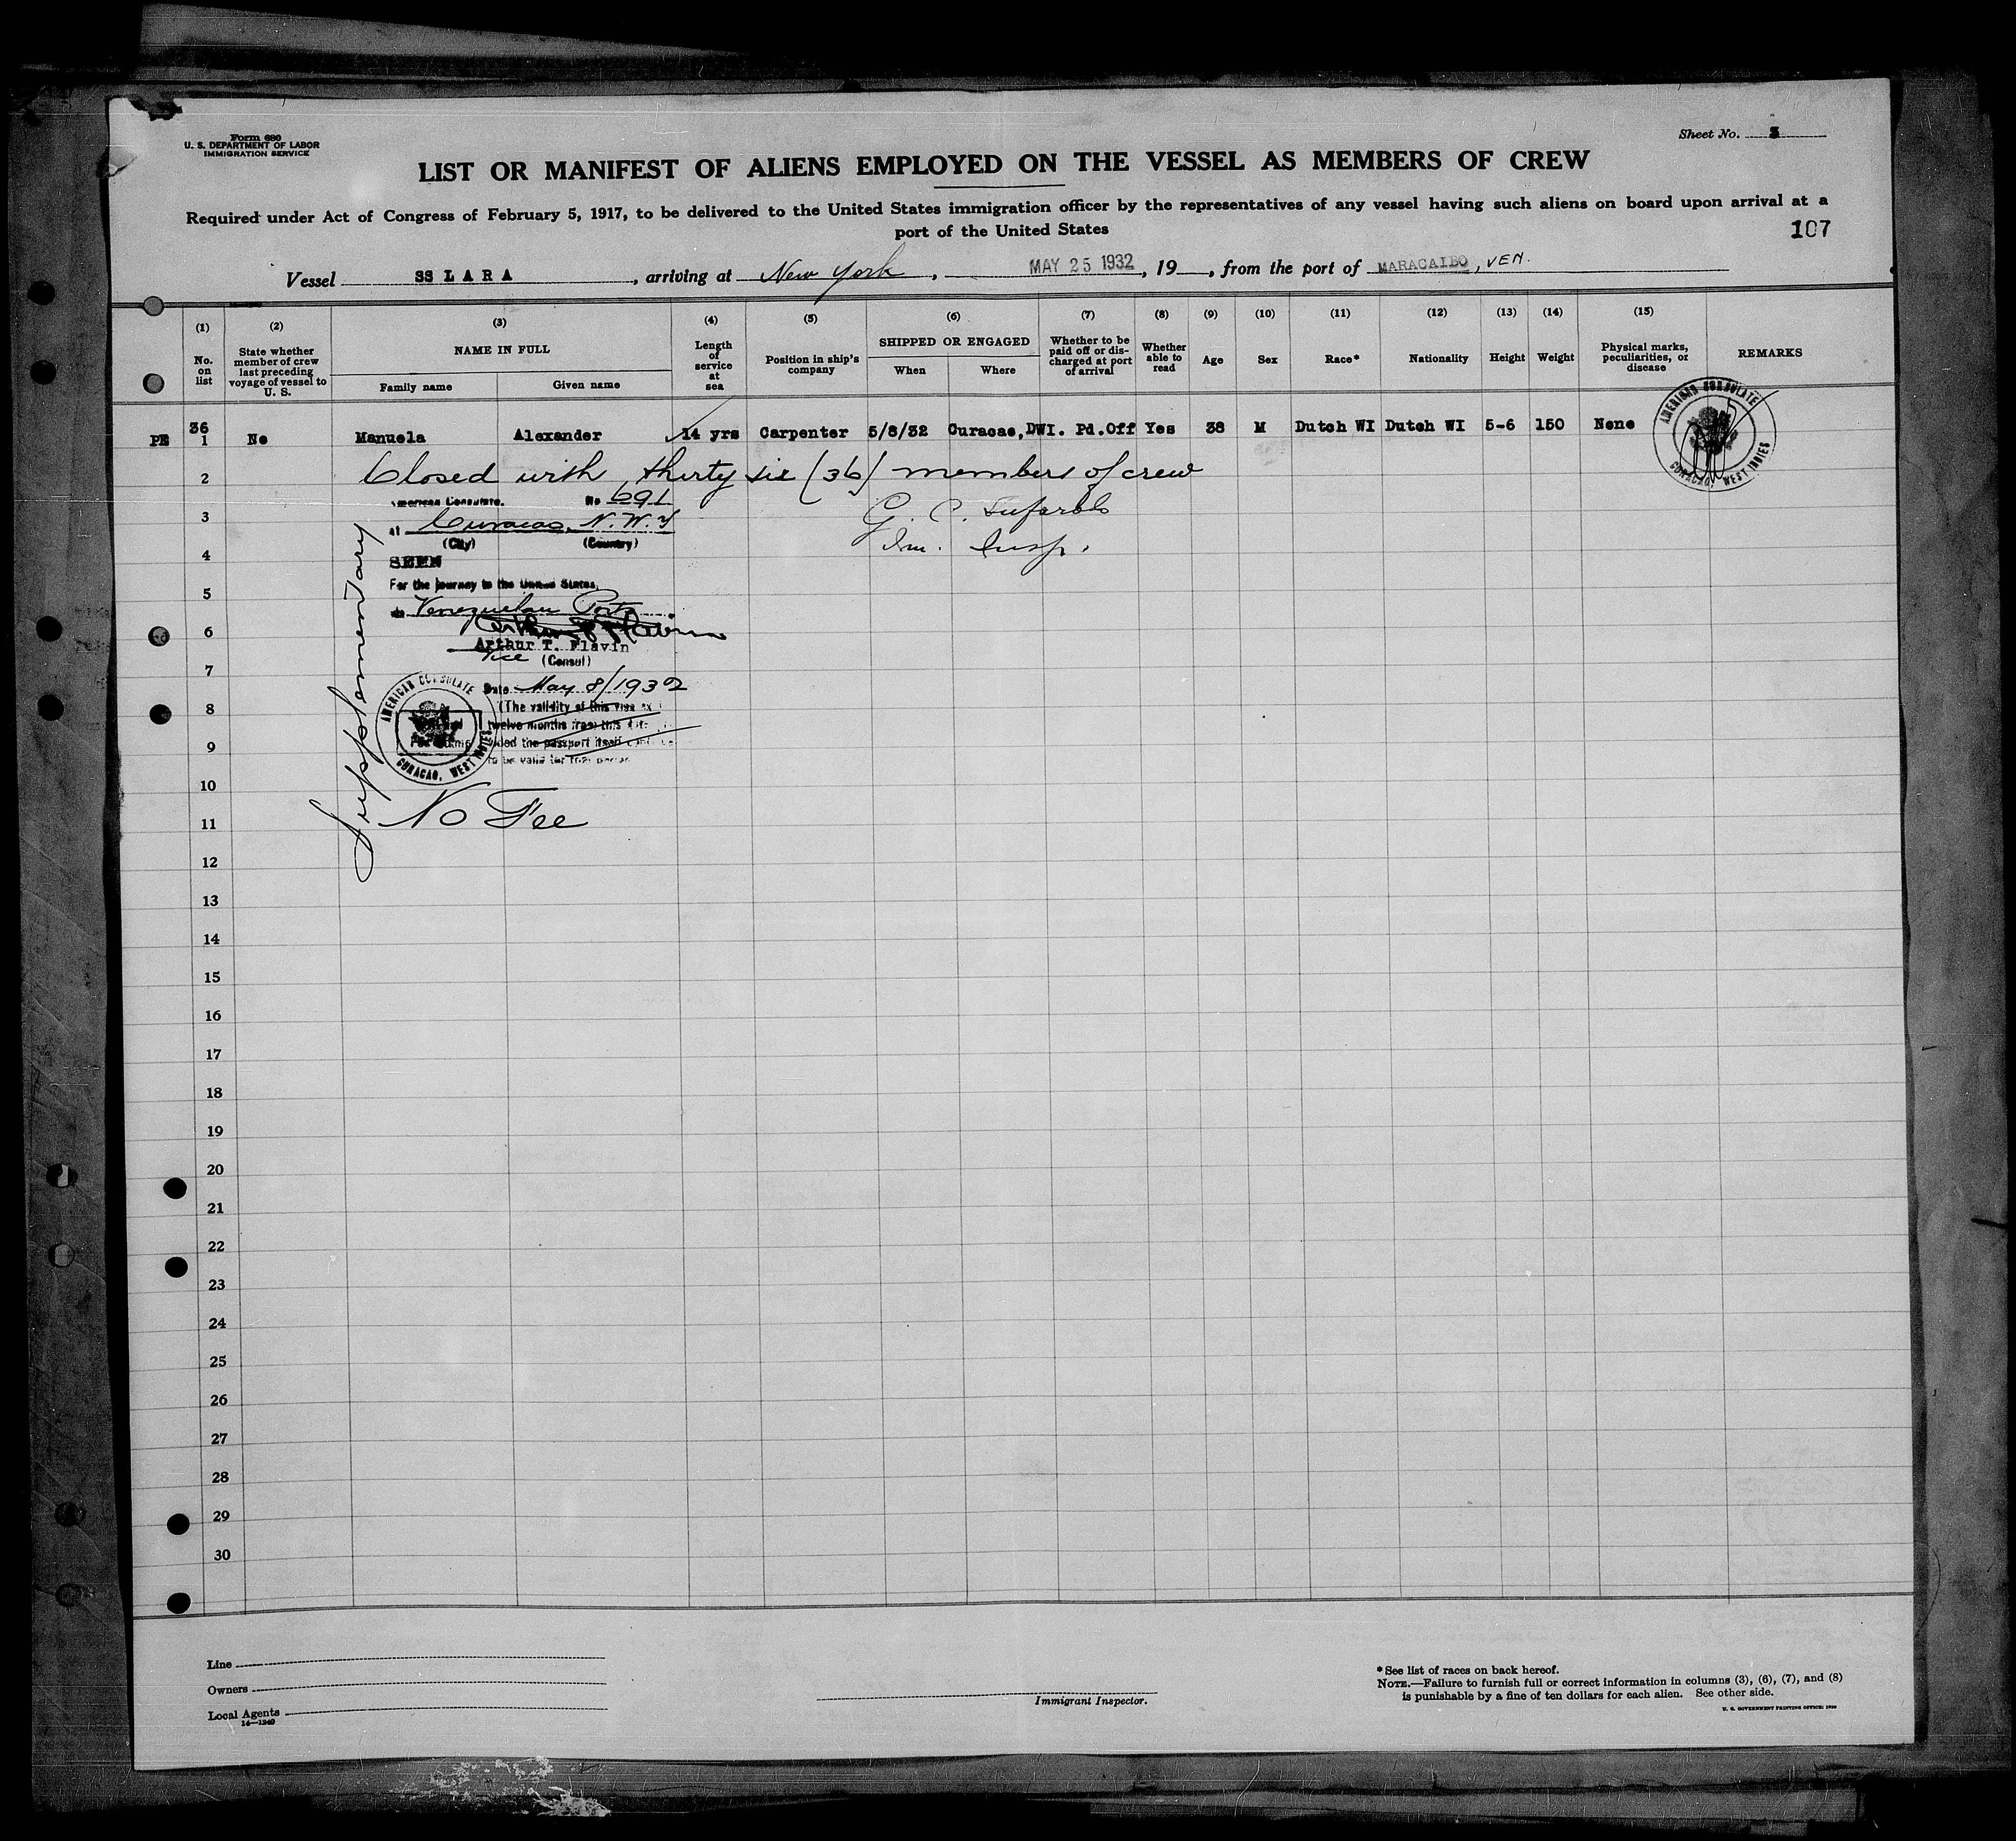 Form 680
U. S. DEPARTMENT OF LABOR
IMMIGRATION SERVICE
Sheet No. 3
LIST OR MANIFEST OF ALIENS EMPLOYED ON THE VESSEL AS MEMBERS OF CREW
Required under Act of Congress of February 5, 1917, to be delivered to the United States immigration officer by the representatives of any vessel having such aliens on board upon arrival at a
port of the United States
107
Vessel SS LARA, arriving at New York, MAY 25 1932, 19, from the port of MARACAIBO, VEN.
(1) (2) (3) (4) (5) (6) (7) (8) (9) (10) (11) (12) (13) (14) (15)
No. on list
State whether member of crew last preceding voyage of vessel to U. S.
NAME IN FULL
Family name
Given name
Length of service at sea
Position in ship's company
SHIPPED OR ENGAGED
When
Where
Whether to be paid off or discharged at port of arrival
Whether able to read
Age
Sex
Race*
Nationality
Height
Weight
Physical marks, peculiarities, or disease
REMARKS
36
PE 1 No Manuela Alexander 14 yrs Carpenter 5/8/32 Curacao, DWI. Pd.Off Yes 38 M Dutch WI Dutch WI 5-6 150 None
AMERICAN CONSULATE
CURACAO, WEST INDIES
2 Closed with thirty six (36) members of crew
American Consulate. No 691
3 at Curacao, N.W.I
G. C.
(City) (Country)
4 Im. Insp.
SEEN
For the journey to the United States,
5
via Venezuelan Ports
6
Arthur T. Flavin
Vice (Consul)
7
Date May 8/1932
AMERICAN CONSULATE
CURACAO, WEST INDIES
8 (The validity of this visa
twelve months from this
9
the passport itself
to be valid for that period
10
Supplementary
No Fee
11
12
13
14
15
16
17
18
19
20
21
22
23
24
25
26
27
28
29
30
Line
Owners
Local Agents
14—1240
Immigrant Inspector.
*See list of races on back hereof.
NOTE.—Failure to furnish full or correct information in columns (3), (6), (7), and (8)
is punishable by a fine of ten dollars for each alien. See other side.
U. S. GOVERNMENT PRINTING OFFICE: 1930